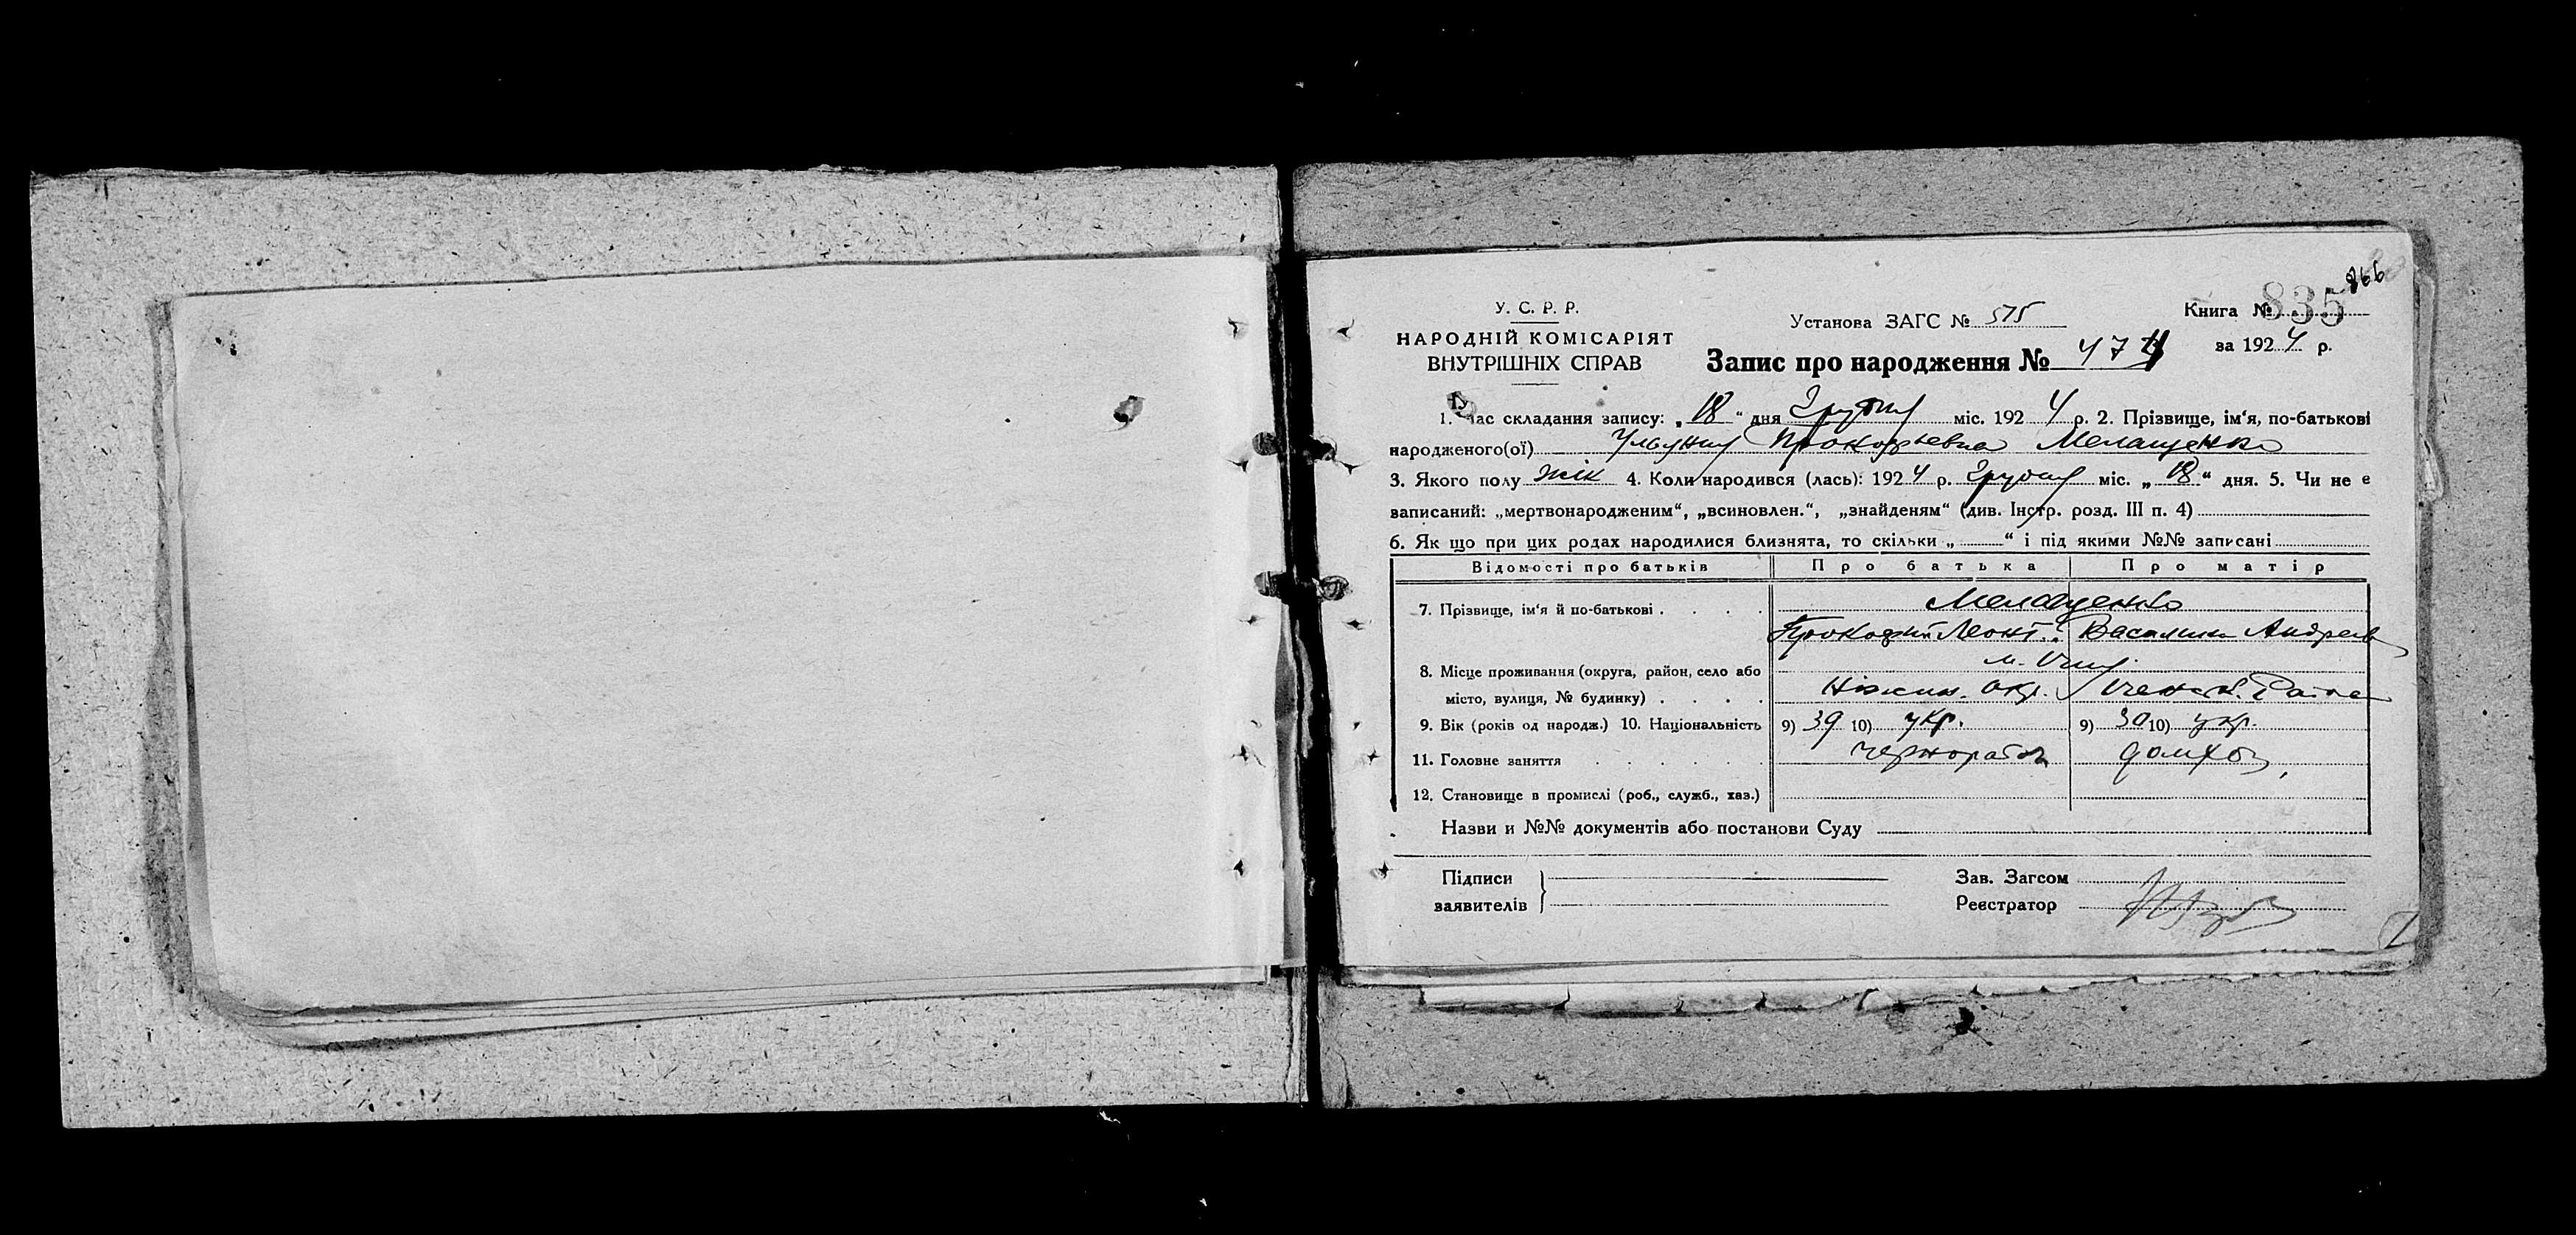 866
У. С. Р. Р.
НАРОДНІЙ КОМІСАРІЯТ
ВНУТРІШНІХ СПРАВ
Установа ЗАГС № 575
Книга № 835
за 1924 р.
Запис про народження № 474
1. Час складання запису: „18“ дня Грудня міс. 1924 р. 2. Прізвище, ім‘я, по-батькові
народженого(ої) Ульяния Прокофьевна Мелащенко
3. Якого полу жік 4. Коли народився (лась): 1924 р. Грудня міс. „18“ дня. 5. Чи не є
записаний: „мертвонародженим“, „всиновлен.“, „знайденям“ (див. Інстр. розд. III п. 4)
6. Як що при цих родах народилися близнята, то скільки „ “ і під якими №№ записані
Відомості про батьків Про батька Про матір
7. Прізвище, ім‘я й по-батькові . . . . Мелащенко
Прокофий Леонт. Василиса Андреев
8. Місце проживання (округа, район, село або м.
місто, вулиця, № будинку) . . . . Ніжин. Окр.
9. Вік (років од народж.) 10. Національність 9) 39 10) укр. 9) 30 10) укр.
11. Головне заняття . . . . . . чернораб домхоз,
12. Становище в промислі (роб., служб., хаз.)
Назви и №№ документів або постанови Суду
Підписи
заявителів
Зав. Загсом
Реєстратор